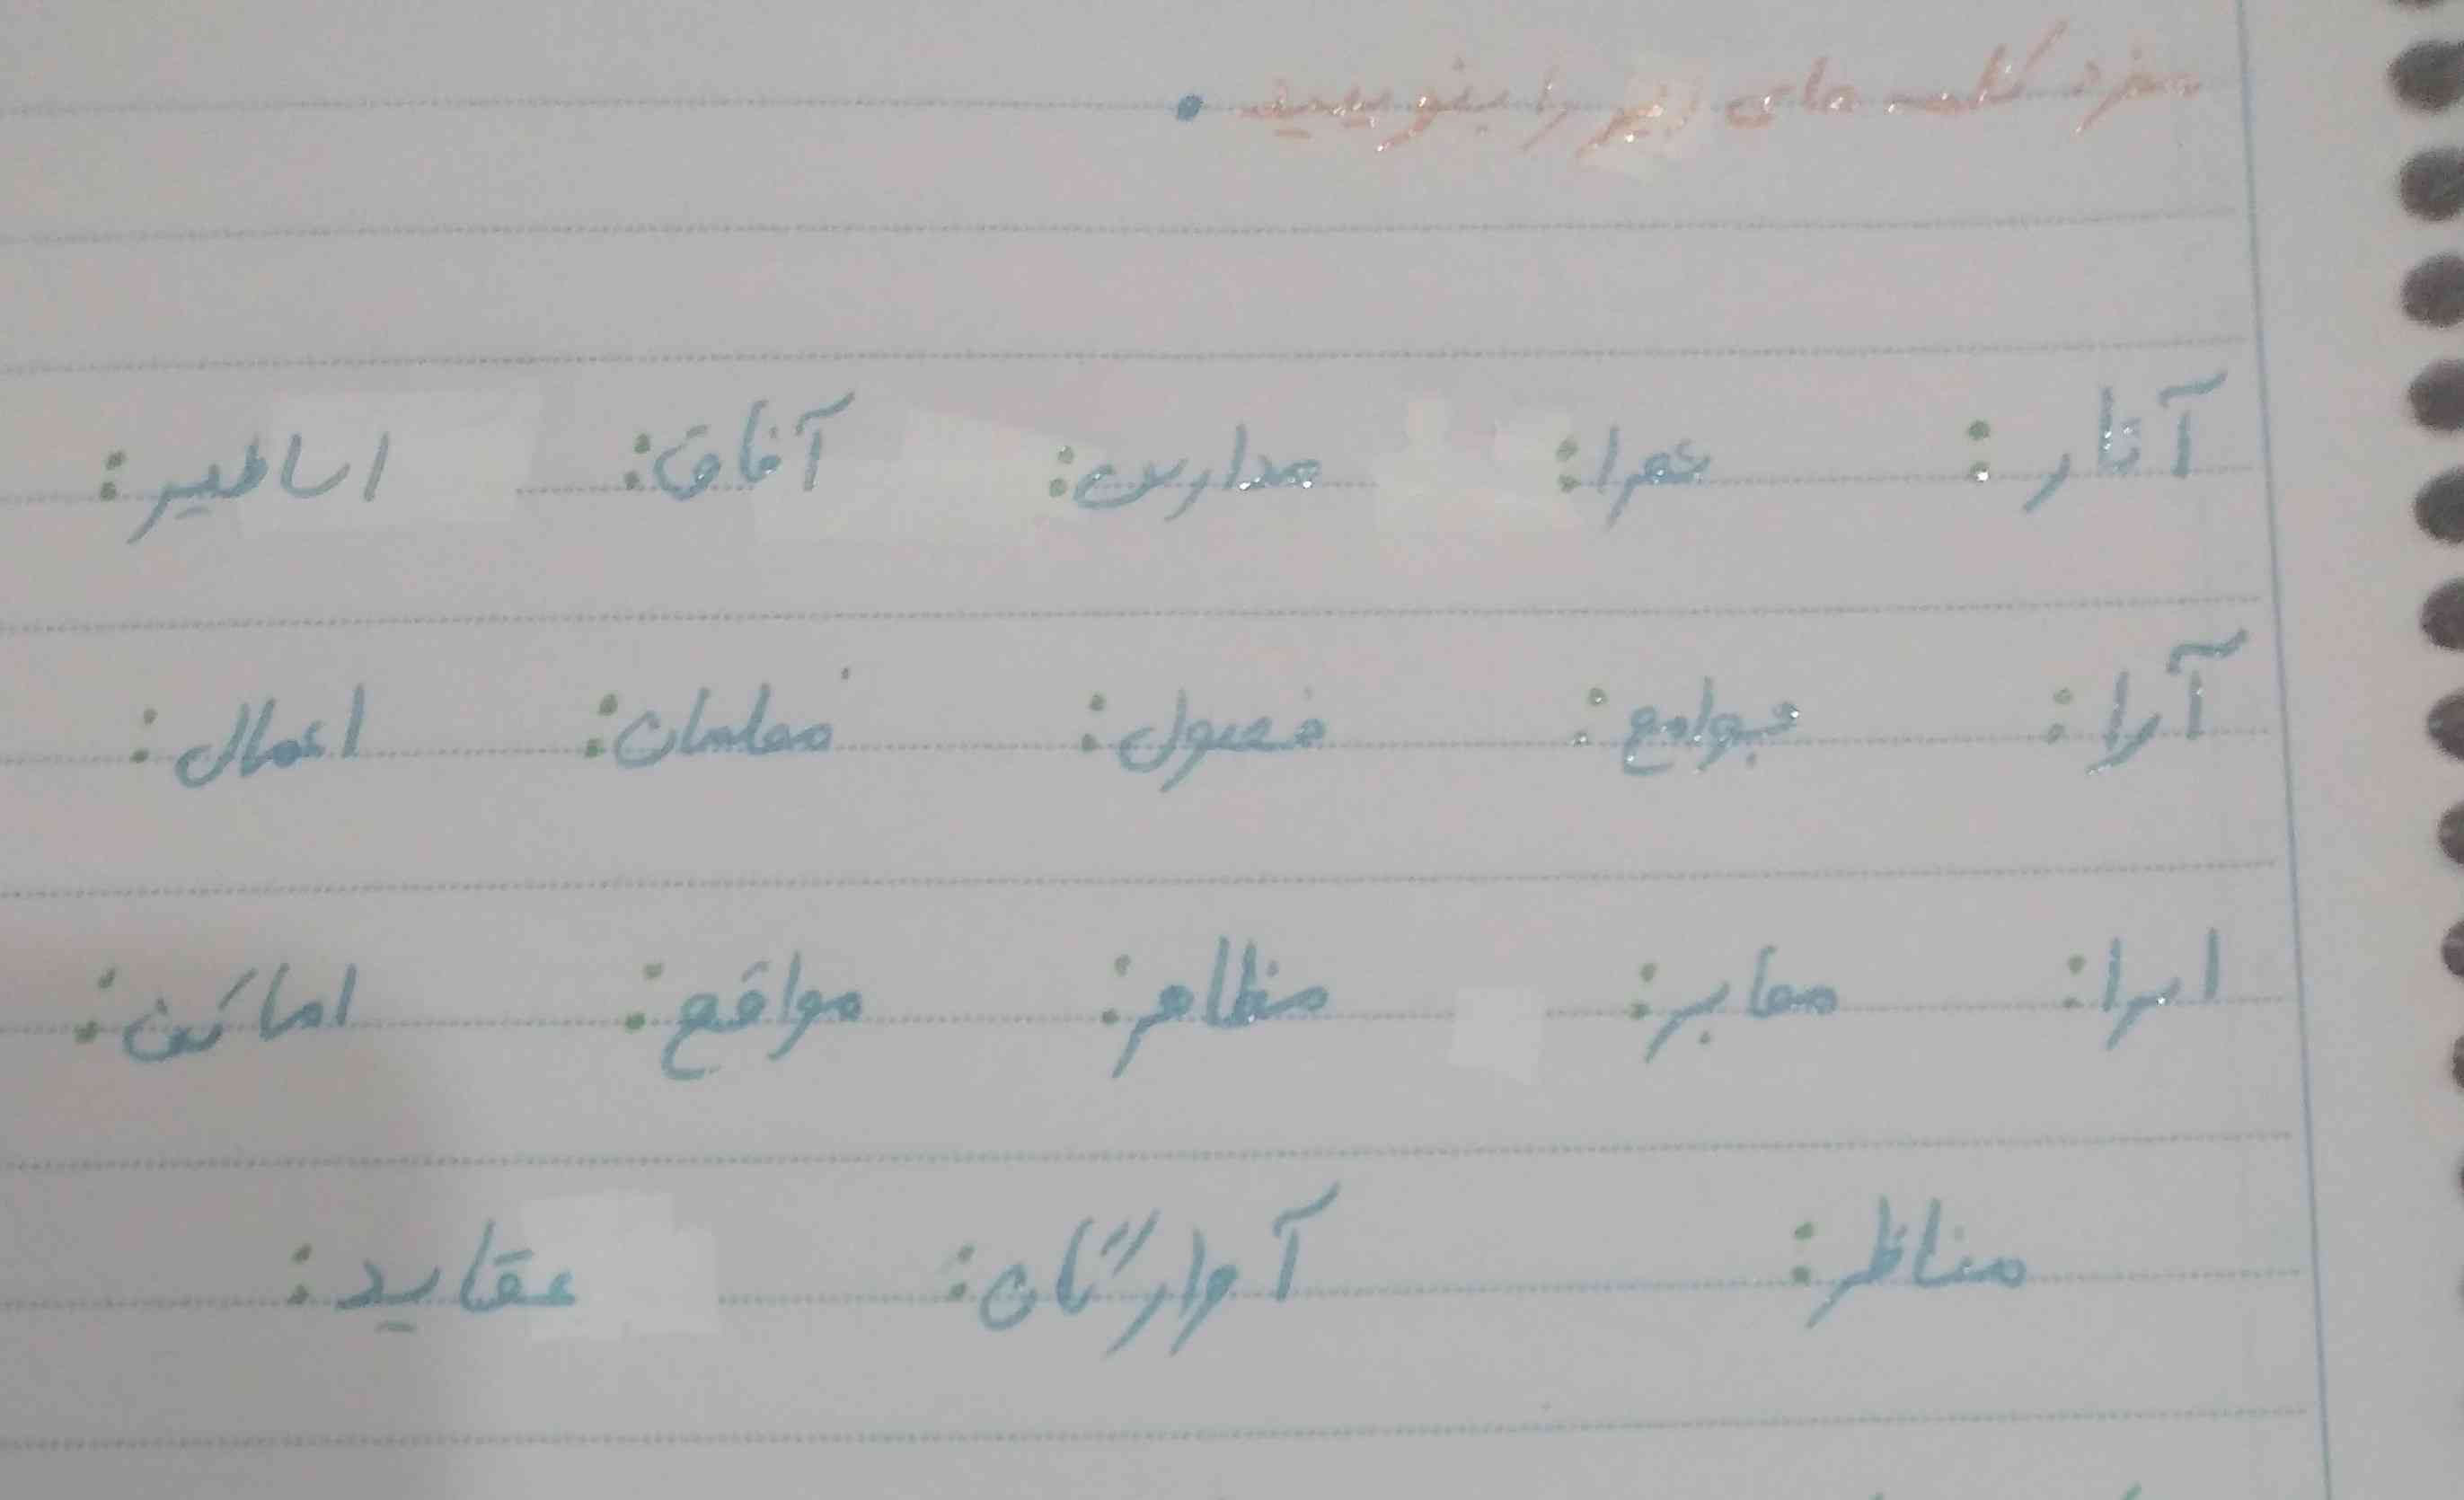 مفرد کلمه های زیر را بنویسید .
آثار : شعرا : مدارس : آفاق : اساطیر :
آرا : جوامع : فصول : معلمان : اعمال :
اسرا : معابر : مظاهر : مواقع : اماکن :
مناظر : آوارگان : عقاید :